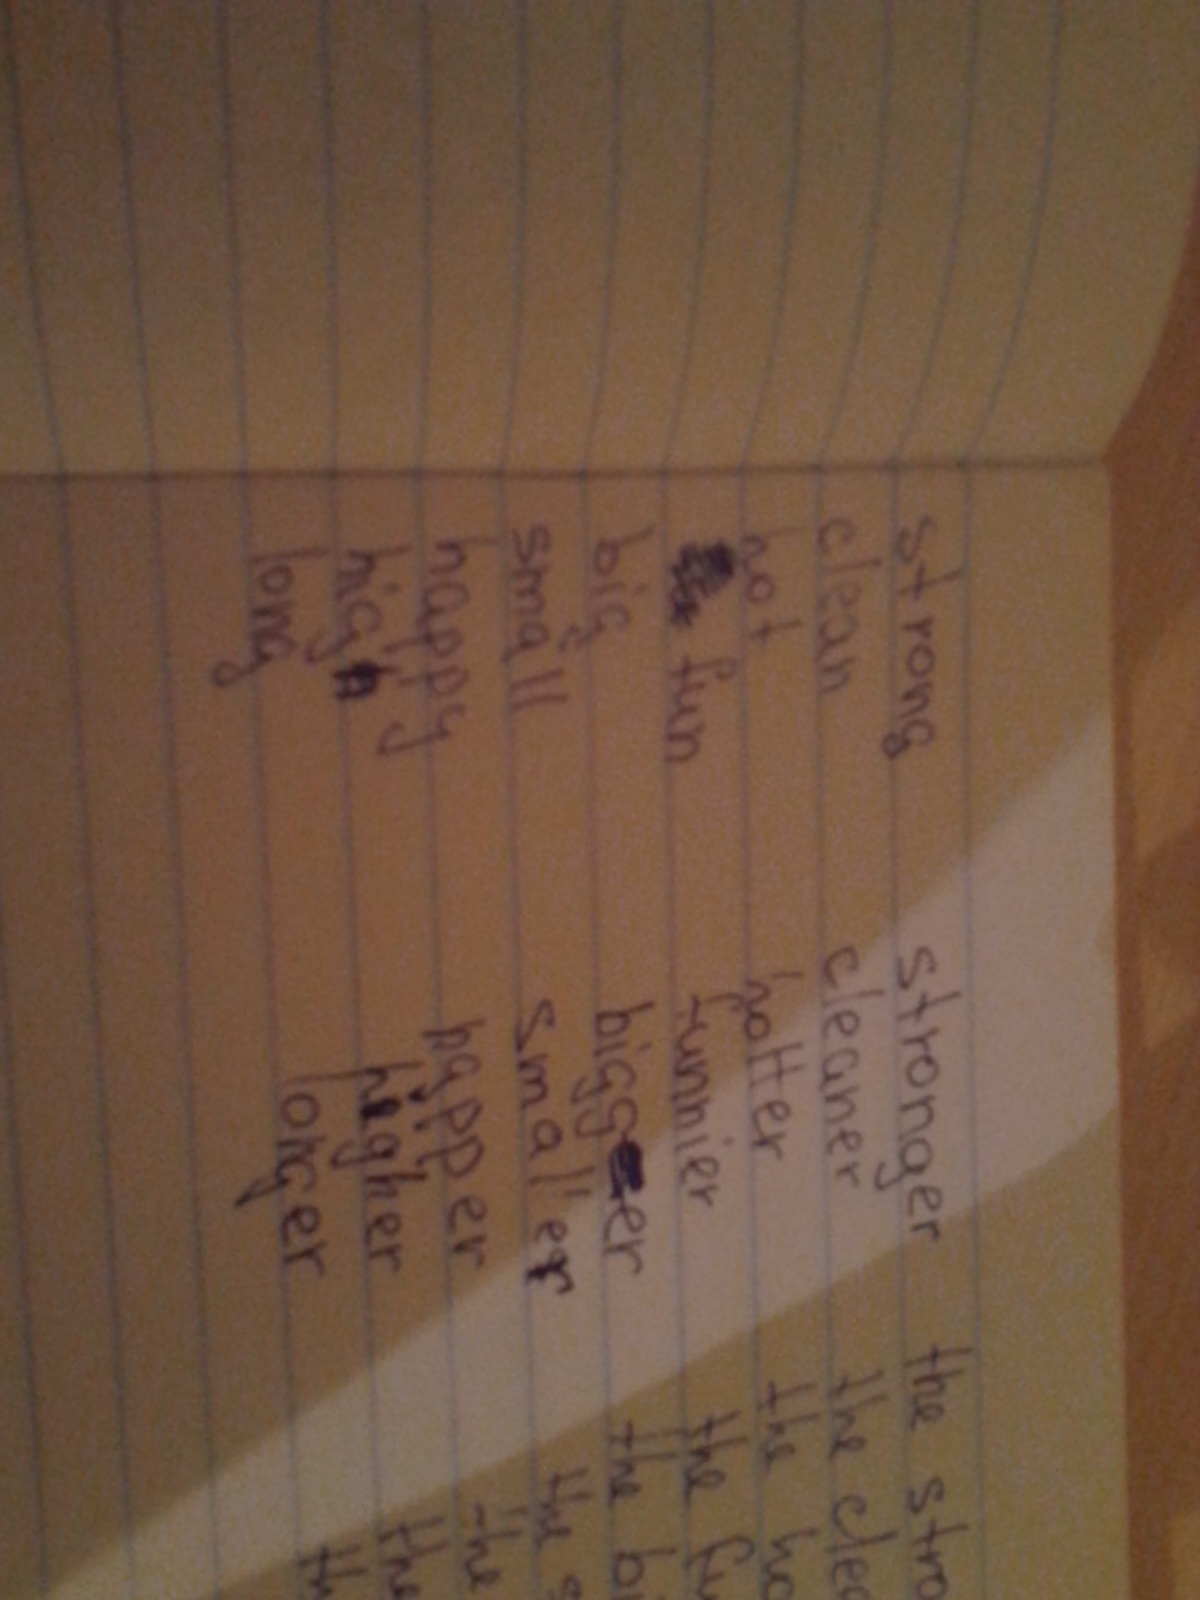 strong stronger the stro
clean cleaner the clea
hot hotter the ho
fun funnier the fu
big bigger the bi
small smaller the s
happy happer the
high higher the
long longer th